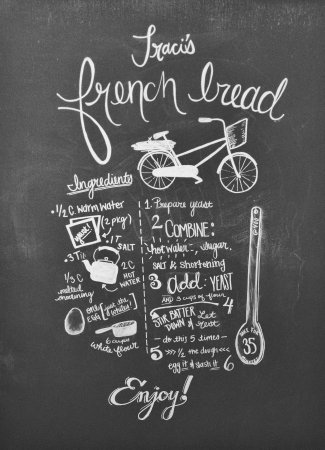 Traci's
french bread
Ingredients
·1/2 C warm water
YEAST!
(2 pkg)
·1T
SALT
·3 Tbl
2 C
HOT
WATER
1/3 C
melted
shortening
one
EGG
(just the
whites!)
6 cups
white flour
1 Prepare yeast
2 COMBINE:
hot water, sugar,
SALT & shortening
3 add: YEAST
AND 3 cups of flour
4
STIR BATTER Let
DOWN & rest
- do this 5 times -
5 >>> 1/2 the dough
egg it & slash it
6
35
Enjoy!